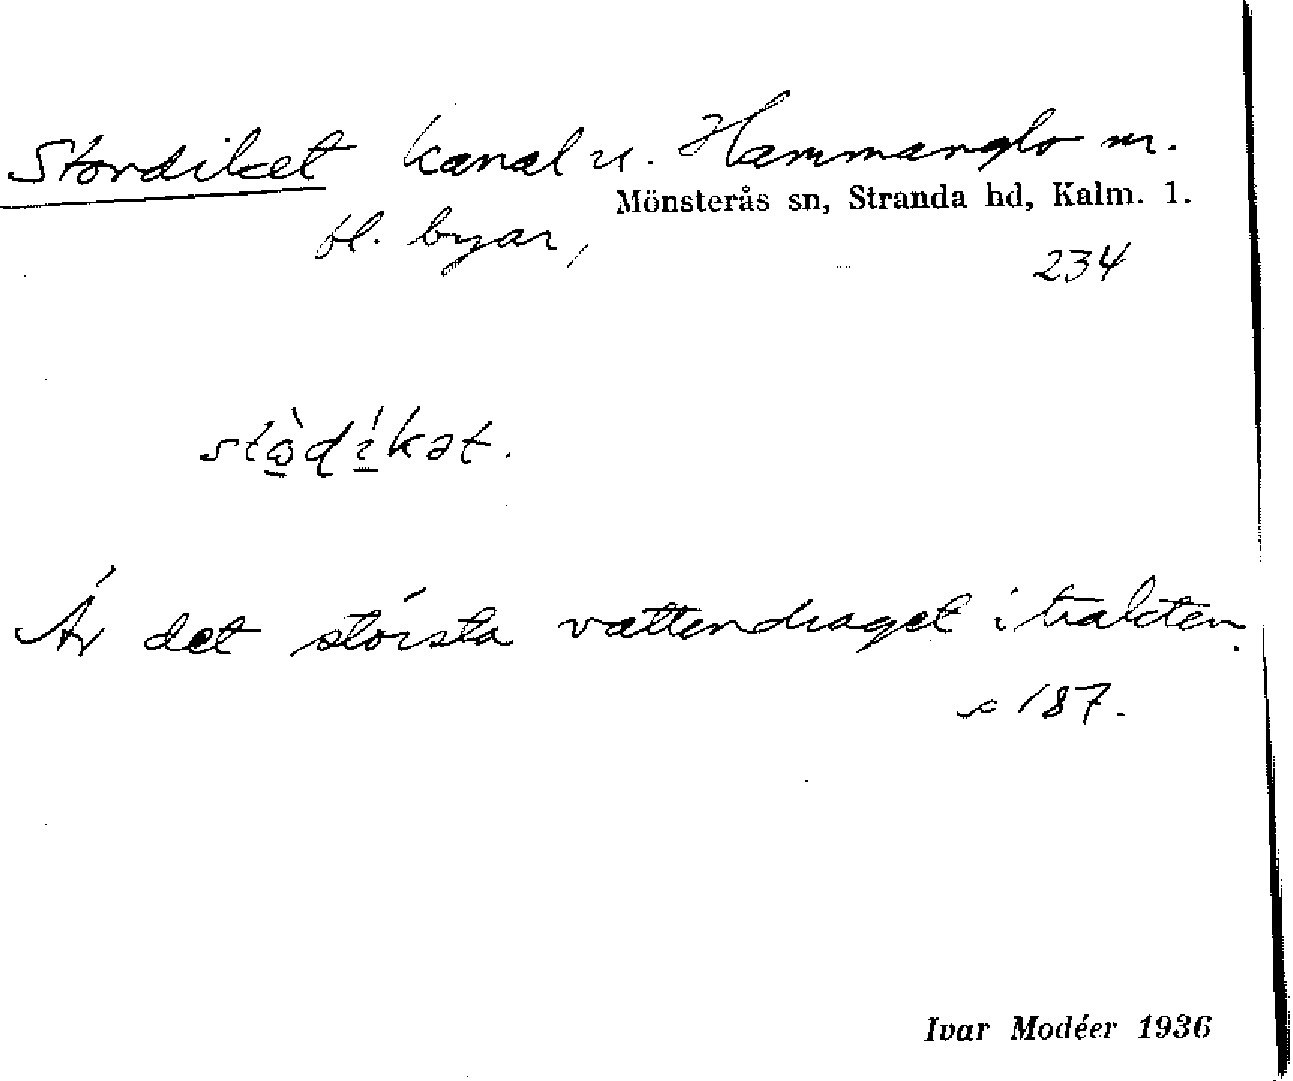 Stordiket kanal u. Hammanglo m.
Mönsterås sn, Stranda hd, Kalm. l.
fl. byar,
234
stὼdíkət.
Är det största vattendraget i trakten.
s 187.
Ivar Modéer 1936